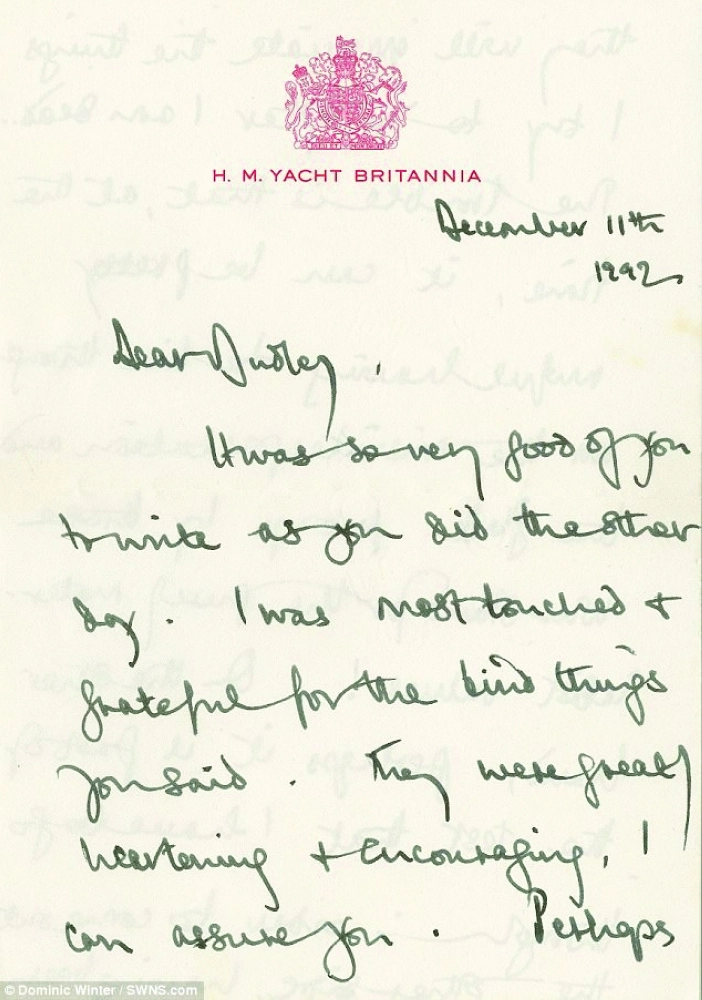 H. M. YACHT BRITANNIA
December 11th
1992
Dear Dudley,
It was so very good of you
to write as you did the other
day. I was most touched +
grateful for the kind things
you said. They were greatly
heartening + encouraging, I
can assure you. Perhaps
© Dominic Winter / SWNS.com